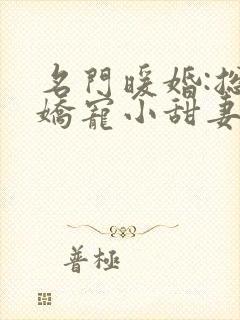 名門暖婚:
嬌寵小甜妻
普極